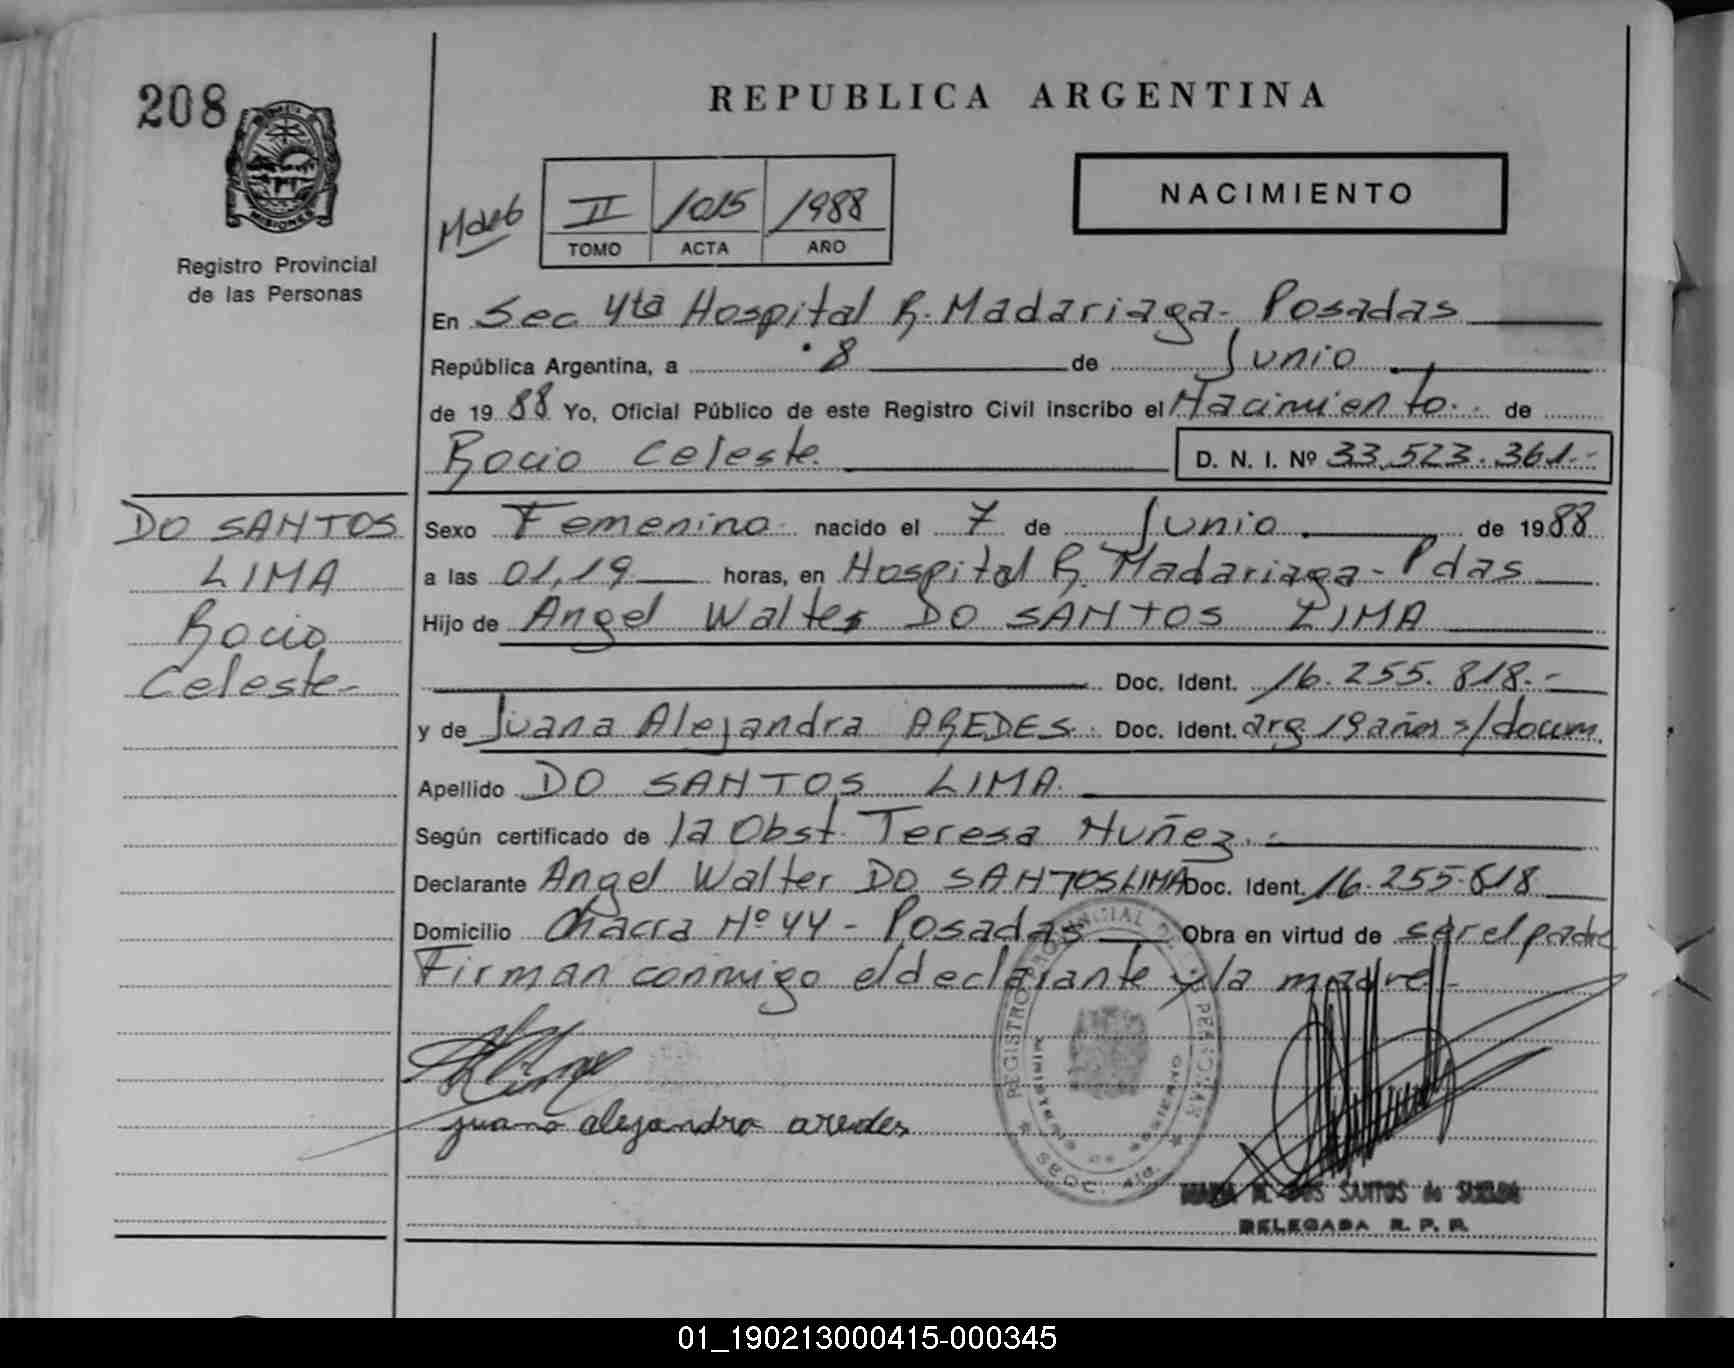 208
REPUBLICA ARGENTINA
NACIMIENTO
II 1015 1988
TOMO ACTA AÑO
MISIONES
Registro Provincial
de las Personas
En Sec 4ta Hospital R. Madariaga - Posadas
República Argentina, a 8 de Junio
de 1988 Yo, Oficial Público de este Registro Civil inscribo el Nacimiento de
Rocio Celeste. D. N. I. Nº 33.523.361.-
DO SANTOS
LIMA
Rocio
Celeste-
Sexo Femenino nacido el 7 de Junio de 1988
a las 01,19 horas, en Hospital R. Madariaga - Pdas
Hijo de Angel Walter DO SANTOS LIMA
Doc. Ident. 16.255.818.-
y de Juana Alejandra AREDES. Doc. Ident. arg 19 años s/docum.
Apellido DO SANTOS LIMA
Según certificado de la Obst. Teresa Nuñez.-
Declarante Angel Walter DO SANTOS LIMA Doc. Ident. 16.255.818
Domicilio Chacra Nº 44 - Posadas Obra en virtud de ser el padre
Firman conmigo el declarante y la madre-
juana alejandra aredes
REGISTRO PROVINCIAL DE PERSONAS
MINISTERIO DE GOBIERNO
SECC. 4ta.
DOS SANTOS de
DELEGADA R. P. P.
01_190213000415-000345